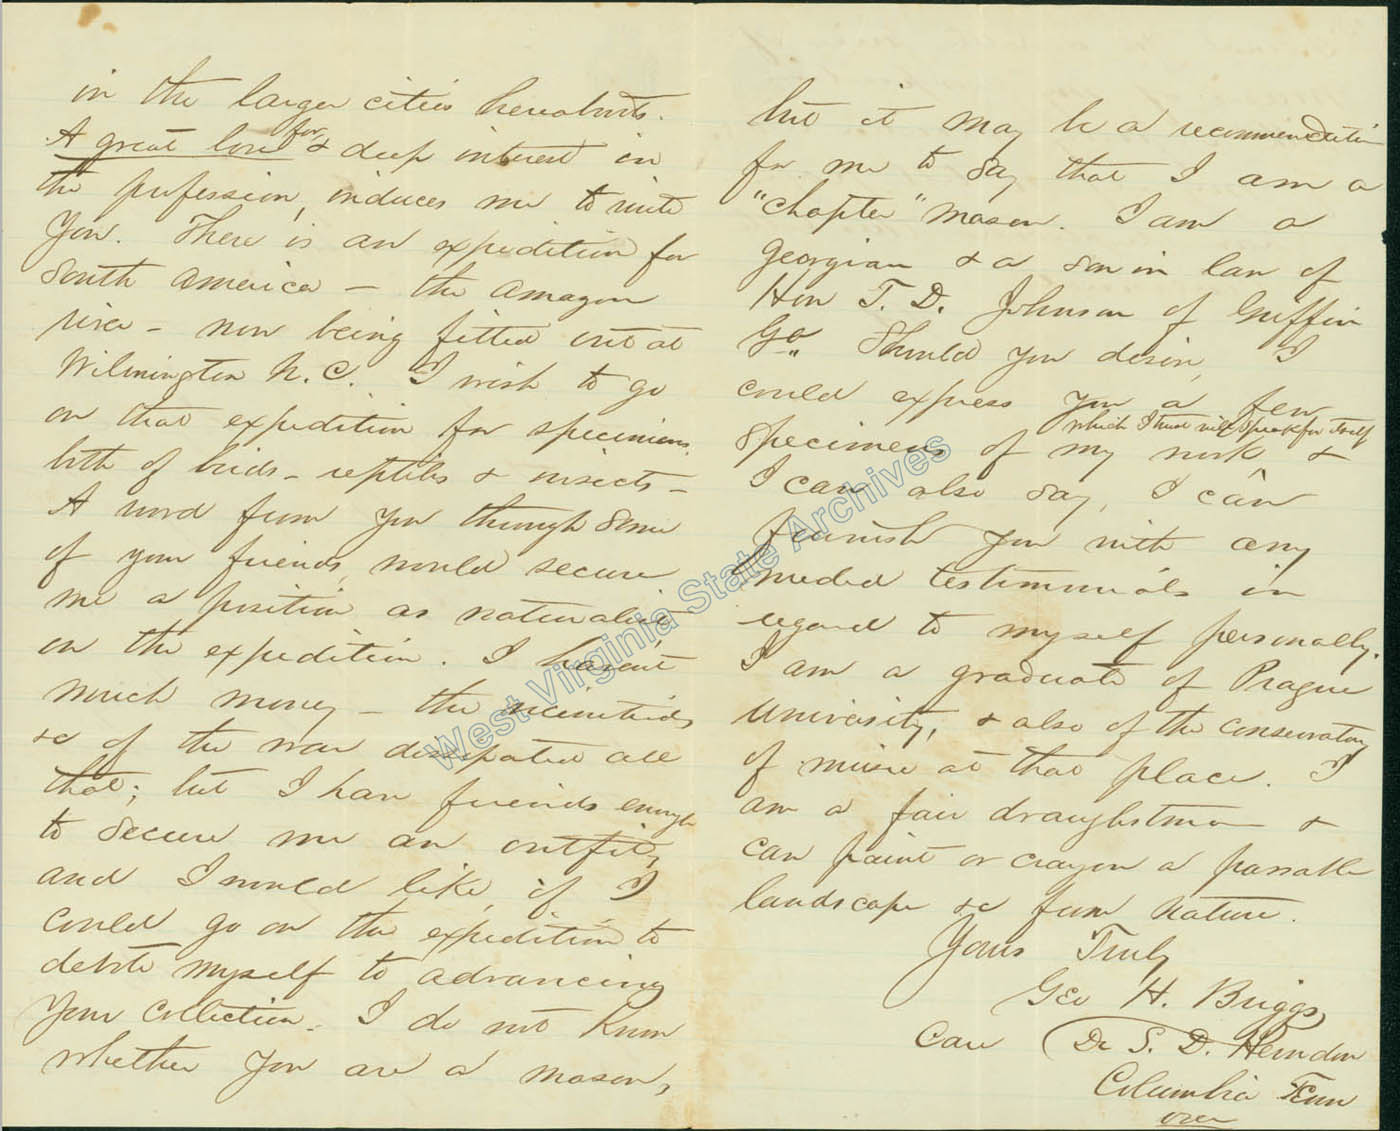 in the larger cities hereabouts.
A great love for & deep interest in
the profession, induces me to write
You. There is an expedition for
South America – the Amazon
river – now being fitted out at
Wilmington N. C. I wish to go
on that expedition for specimens,
both of birds – reptiles & insects –
A word from you through some
of your friends, would secure
me a position as naturalist
on the expedition. I havent
much money – the vicissitudes
&c of the war dissipated all
that; but I have friends enough
to secure me an outfit,
and I would like, if I
could go on the expedition to
devote myself to advancing
Your collection. I do not know
whether you are a mason,
but it may be a recommendation
for me to say that I am a
"chapter" mason. I am a
Georgian & a son in law of
Hon T. D. Johnson of Griffin
Ga. Should you desire, I
could express you a few
which I trust will speak for itself
specimens of my work, &
I can also say, I can
furnish you with any
needed testimonials in
regard to myself personally.
I am a graduate of Prague
University, & also of the conservatory
of music at that place. I
am a fair draughtsman &
can paint or crayon a passable
landscape &c from nature.
Yours Truly
Geo H. Briggs,
Care Dr S. D. Herndon
Columbia Tenn
over
West Virginia State Archives